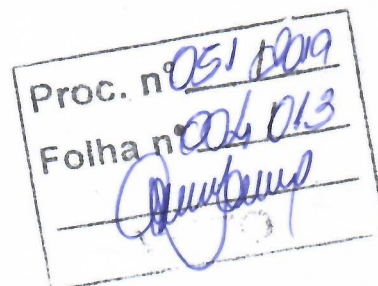 Proc. nº 051 / 2019
Folha nº 004 / 013